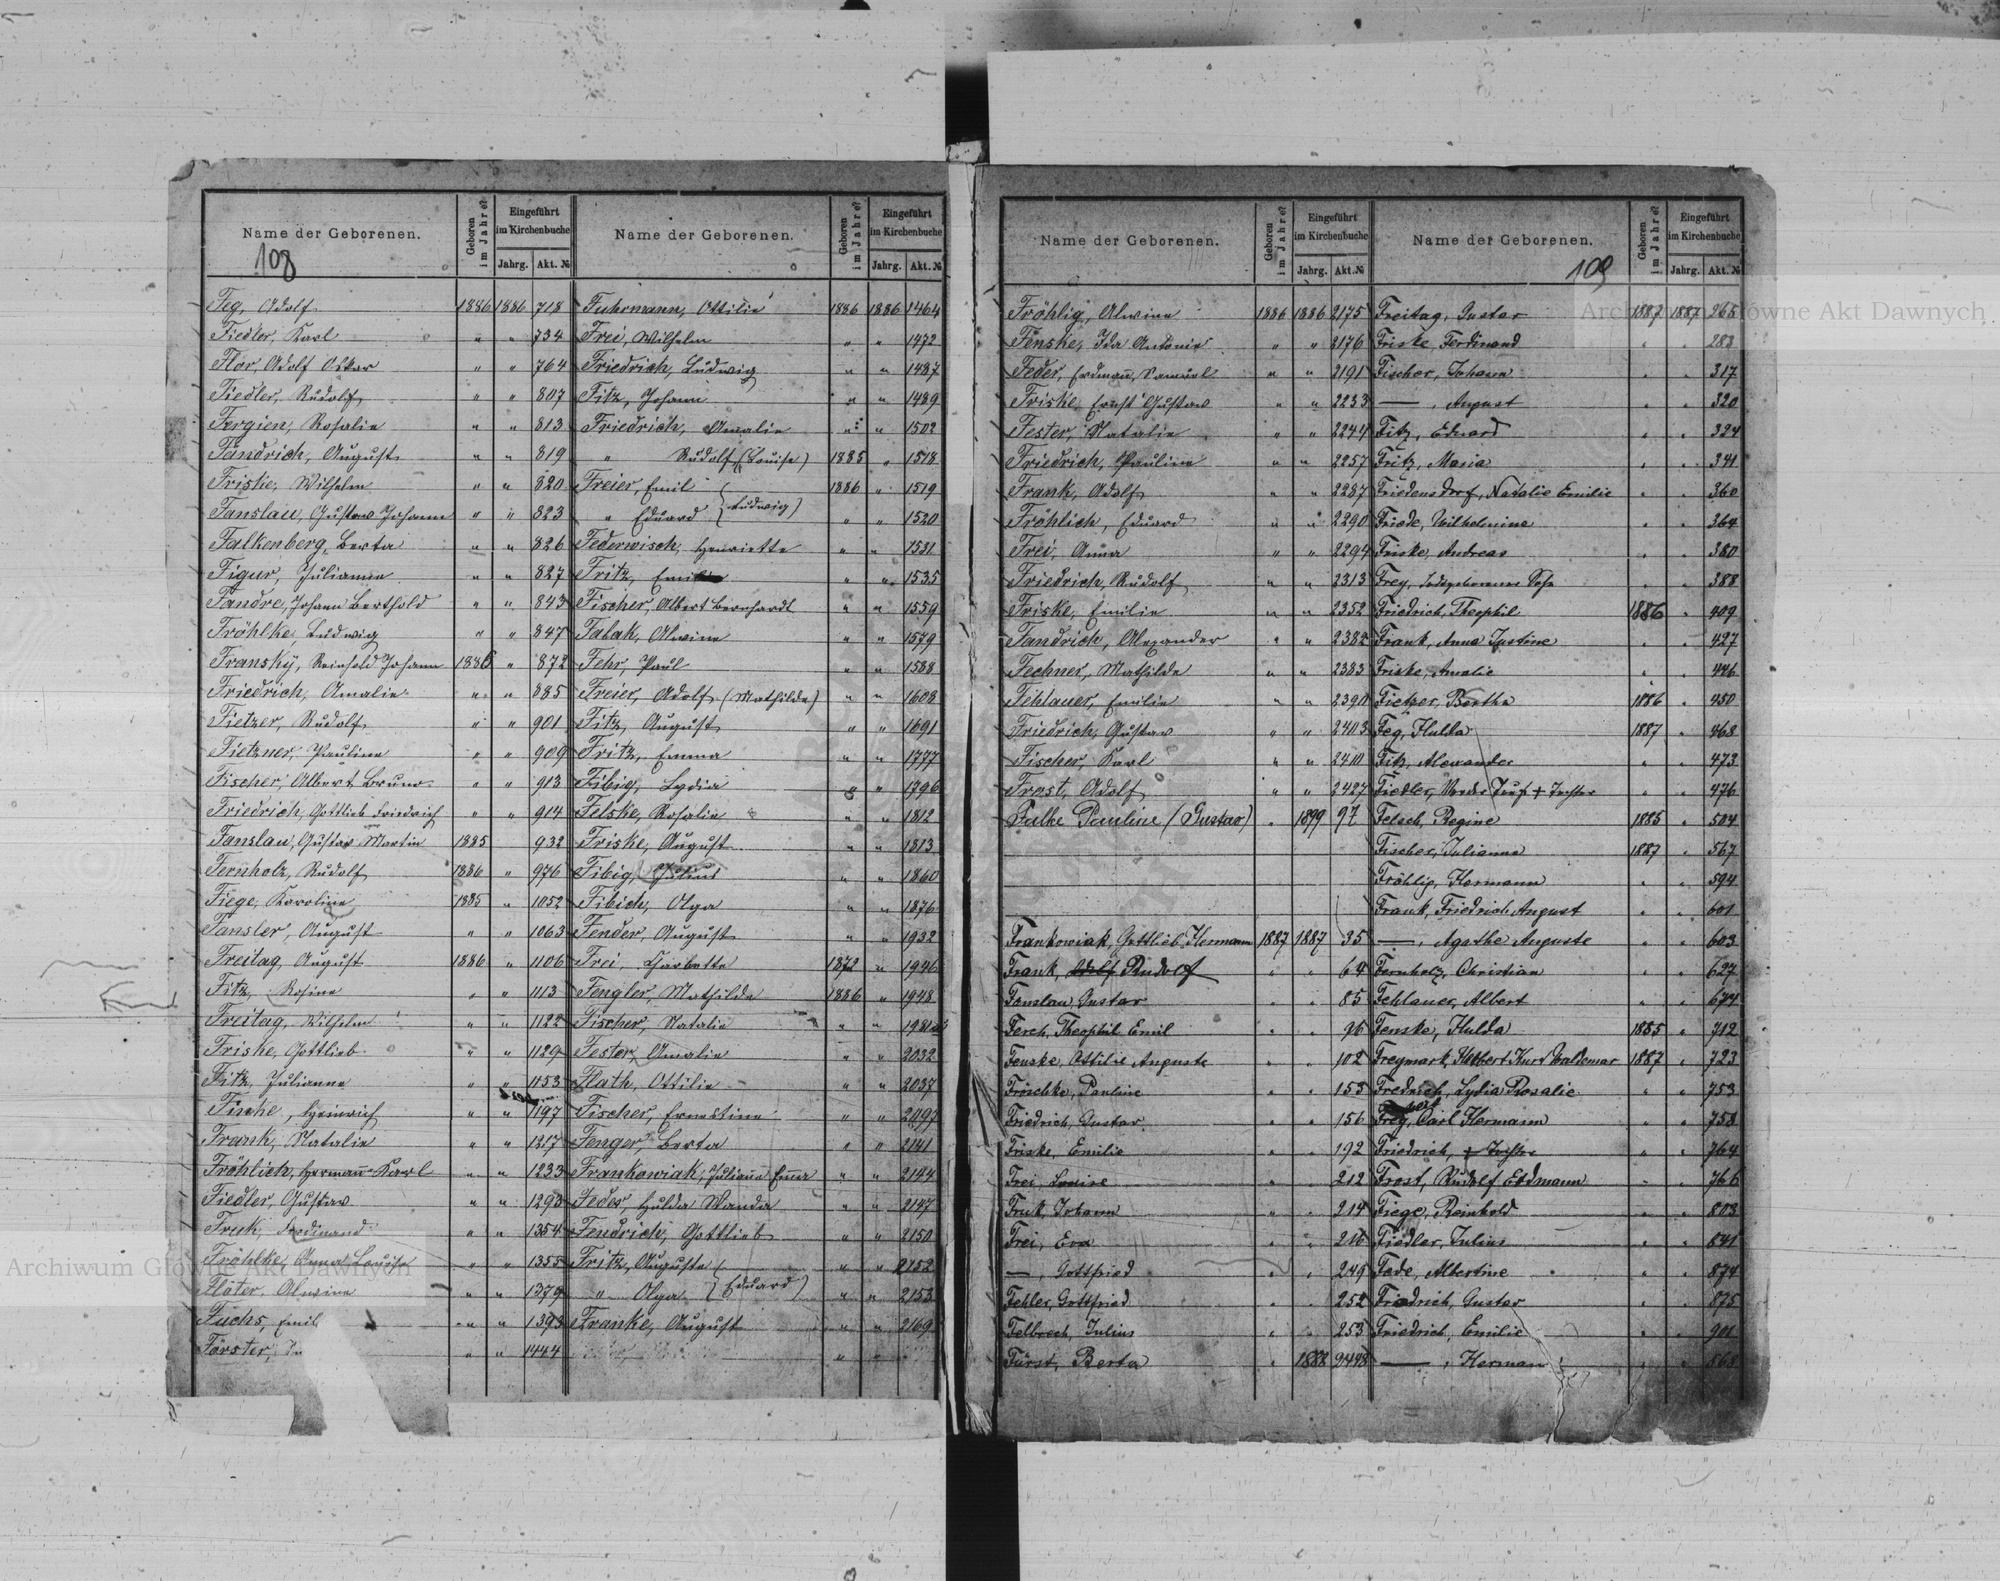 Name der Geborenen.
108
Geboren im Jahre?
Eingeführt im Kirchenbuche
Jahrg. Akt. №
Feg, Adolf 1886 1886 718
Fiedler, Karl " " 734
Flor, Adolf Oskar " " 764
Fiedler, Rudolf " " 807
Fergien, Rosalie " " 813
Fandrich, August " " 819
Friske, Wilhelm " " 820
Fanslau, Gustav Johann " " 823
Falkenberg, Berta " " 826
Figur, Julianna " " 827
Fandre, Johann Berthold " " 843
Fröhlke, Ludwig " " 847
Fransky, Reinhold Johann 1886 " 872
Friedrich, Amalie " " 885
Fietzer, Rudolf " " 901
Fietzner, Pauline " " 909
Fischer, Albert Bruno " " 913
Friedrich, Gottlieb Friedrich " " 914
Fanslau, Gustav Martin 1885 932
Fernholz, Rudolf 1886 " 976
Fiege, Karoline 1885 " 1052
Fansler, August " " 1063
Freitag, August 1886 " 1106
Fitz, Rosine " " 1113
Freitag, Wilhelm " " 1122
Friske, Gottlieb " " 1129
Fitz, Julianne " " 1153
Fischke, Heinrich " " 1197
Frank, Natalie " " 1217
Fröhlich, Hermann Karl " " 1233
Fiedler, Gustav " " 1293
Fruk, Ferdinand " " 1354
Fröhlke, Anna Louise " " 1355
Flöter, Alwine " " 1379
Fuchs, Emil " " 1393
Förster, " " 1444
Name der Geborenen.
Geboren im Jahre?
Eingeführt im Kirchenbuche
Jahrg. Akt. №
Fuhrmann, Ottilie 1886 1886 1464
Frei, Wilhelm " " 1472
Friedrich, Ludwig " " 1487
Fitz, Johann " " 1489
Friedrich, Amalie " " 1502
" Rudolf (Louise) 1885 " 1518
Freier, Emil 1886 " 1519
" Eduard (Ludwig) " " 1520
Federwisch, Henriette " " 1531
Fritz, " " 1535
Fischer, Albert Bernhardt " " 1559
Fabak, Alwine " " 1579
Fehr, Paul " " 1588
Freier, Adolf (Mathilde) " " 1608
Fitz, August " " 1691
Fritz, Emma " " 1777
Fibig, Lydia " 1796
Felske, Rosalie " " 1812
Friske, August " " 1813
Fibig, Julius " " 1860
Fibich, Olga " " 1876
Fender, August " " 1932
Frei, 1872 " 1946
Fengler, Mathilde 1886 " 1948
Fischer, Natalie " "
Fester, Amalie " " 2032
Flath, Ottilie " " 2037
Fischer, Ernestine " " 2097
Fenger, Berta " " 2141
Frankowiak, Julianna Emma " " 2144
Feder, Hulda Wanda " " 2147
Fendrich, Gottlieb " " 2150
Fritz, Auguste " " 2152
" Olga (Eduard) " " 2153
Franke, August " " 2169
" "
Name der Geborenen.
Geboren im Jahre?
Eingeführt im Kirchenbuche
Jahrg. Akt. №
Fröhlig, Alwine 1886 1886 2175
Fenske, Ida Antonie " " 2176
Feder, Erdmann, Samuel " " 2191
Friske, Ernst Gustav " " 2233
Fester, Natalie " " 2244
Friedrich, Pauline " " 2257
Frank, Adolf " " 2287
Fröhlich, Eduard " " 2290
Frei, Anna " " 2294
Friedrich, Rudolf " " 2313
Friske, Emilie " " 2352
Fandrich, Alexander " " 2382
Fechner, Mathilde " " 2383
Fehlauer, Emilie " " 2390
Friedrich, Gustav " " 2403
Fischer, Karl " " 2410
Frost, Adolf " " 2427
Falke Pauline (Gustav) " 1899 97
Frankowiak, Gottlieb Hermann 1887 1887 35
Frank, Adolf Rudolf " " 64
Fanslau, Gustav " " 85
Ferch, Theophil Emil " " 96
Fenske, Ottilie Auguste " " 102
Fröschke, Pauline " " 155
Friedrich, Gustav " " 156
Friske, Emilie " " 192
Frei, Louise " " 212
Fruk, Johann " " 214
Frei, Eva " " 216
—, Gottfried " " 249
Fehler, Gottfried " " 252
Felbrech, Julius " " 253
Fürst, Berta " 1888
Name der Geborenen.
109
Geboren im Jahre?
Eingeführt im Kirchenbuche
Jahrg. Akt. №
Freitag, Gustav 1887 1887 265
Friske, Ferdinand " " 283
Fischer, Johann " " 317
—, August " " 320
Fitz, Eduard " " 324
Fritz, Maria " " 341
Friedensdorf, Natalie Emilie " " 360
Friede, Wilhelmine " " 364
Friske, Andreas " " 380
Frey, todtgeborener Sohn " " 388
Friedrich, Theophil 1886 " 409
Frank, Anna Justine " " 427
Friske, Amalie " " 446
Fietzer, Bertha 1886 " 450
Feg, Hulda 1887 " 468
Fitz, Alexander " " 473
Fiedler, + Tochter " " 476
Fetsch, Regine 1885 " 504
Fischer, Julianna 1887 " 567
Fröhlig, Hermann " " 594
Frank, Friedrich August " " 601
—, Agathe Auguste " " 603
Fernholz, Christian " " 627
Fehlauer, Albert " " 674
Fenske, Hulda 1885 " 712
Freymark, Herbert Kurt Waldemar 1887 " 723
Fredrich, Lydia Rosalie " " 753
Frey, Carl Hermann " " 758
Friedrich, + Tochter " " 764
Frost, Rudolf Erdmann " " 766
Fiege, Reinhold " " 803
Fiedler, Julius " " 841
Fede, Albertine " " 874
Friedrich, Gustav " " 875
Friedrich, Emilie " " 901
—, Hermann " " 868
Archiwum Główne Akt Dawnych
Archiwum Główne Akt Dawnych